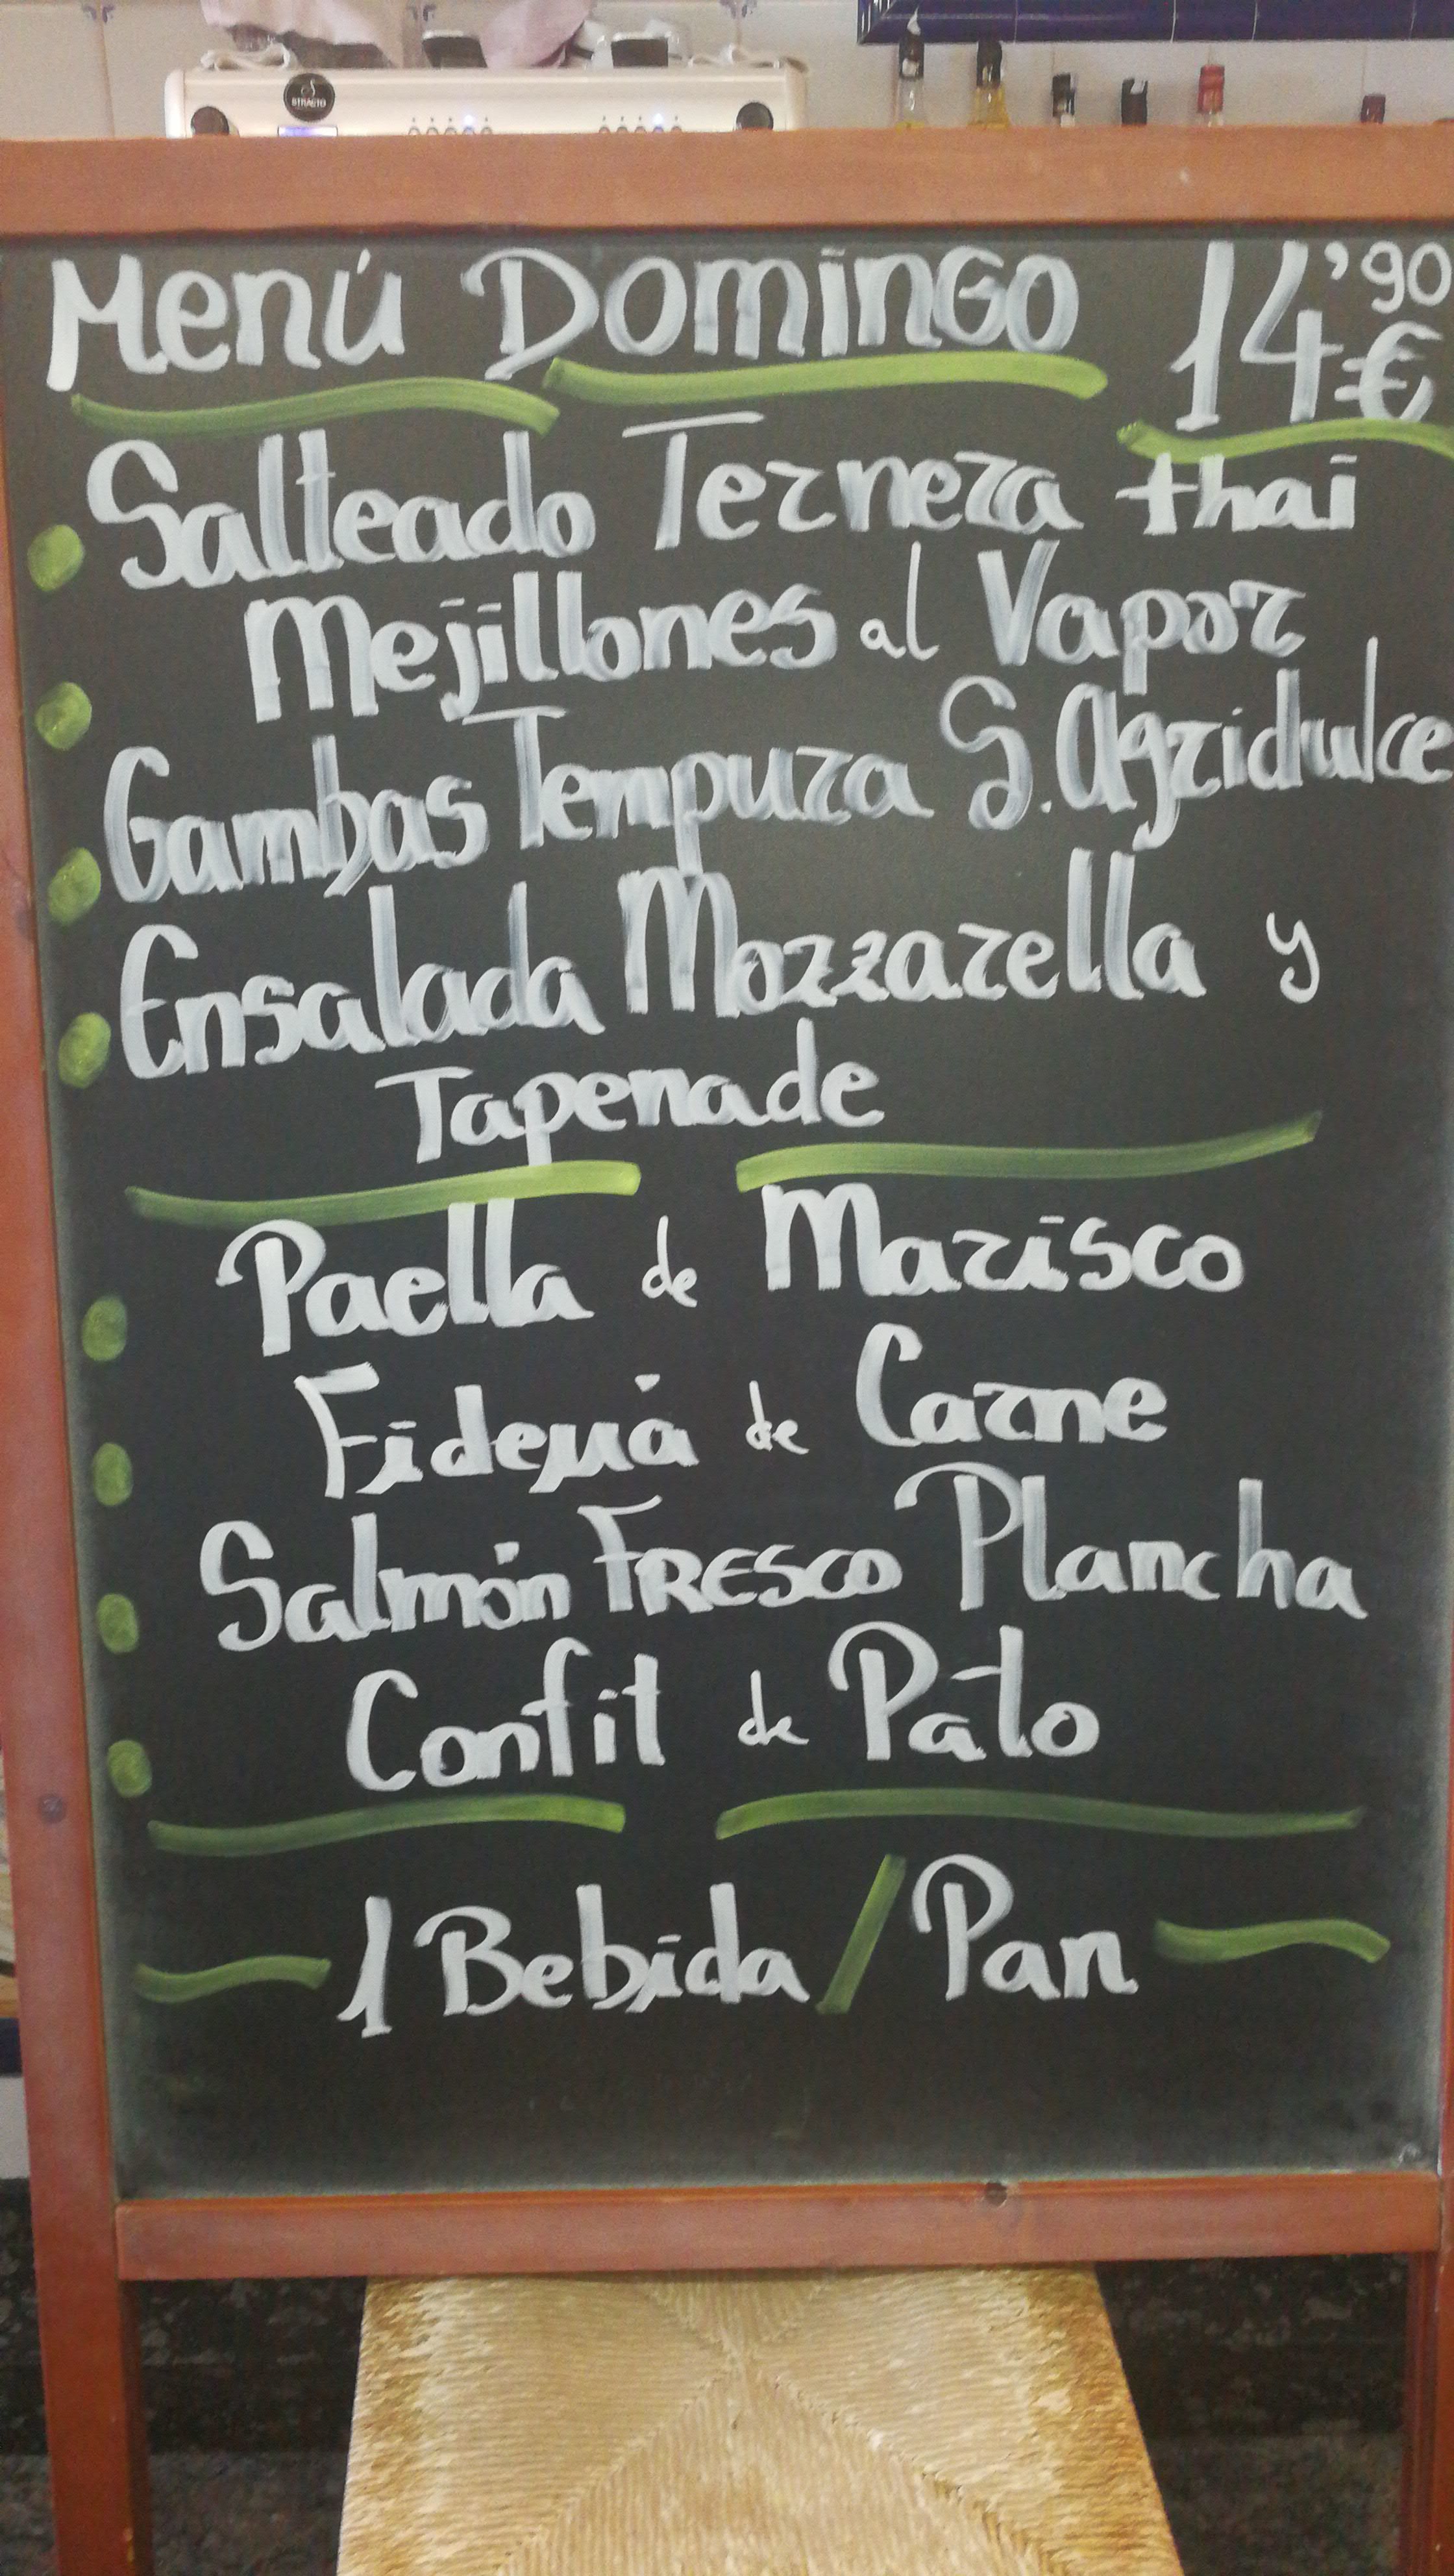 STRACTO
Menú Domingo 14'90€
Salteado Ternera thai
Mejillones al Vapor
Gambas Tempura S. Agridulce
Ensalada Mozzarella y
Tapenade
Paella de Marisco
Fideuá de Carne
Salmón Fresco Plancha
Confit de Pato
1 Bebida / Pan